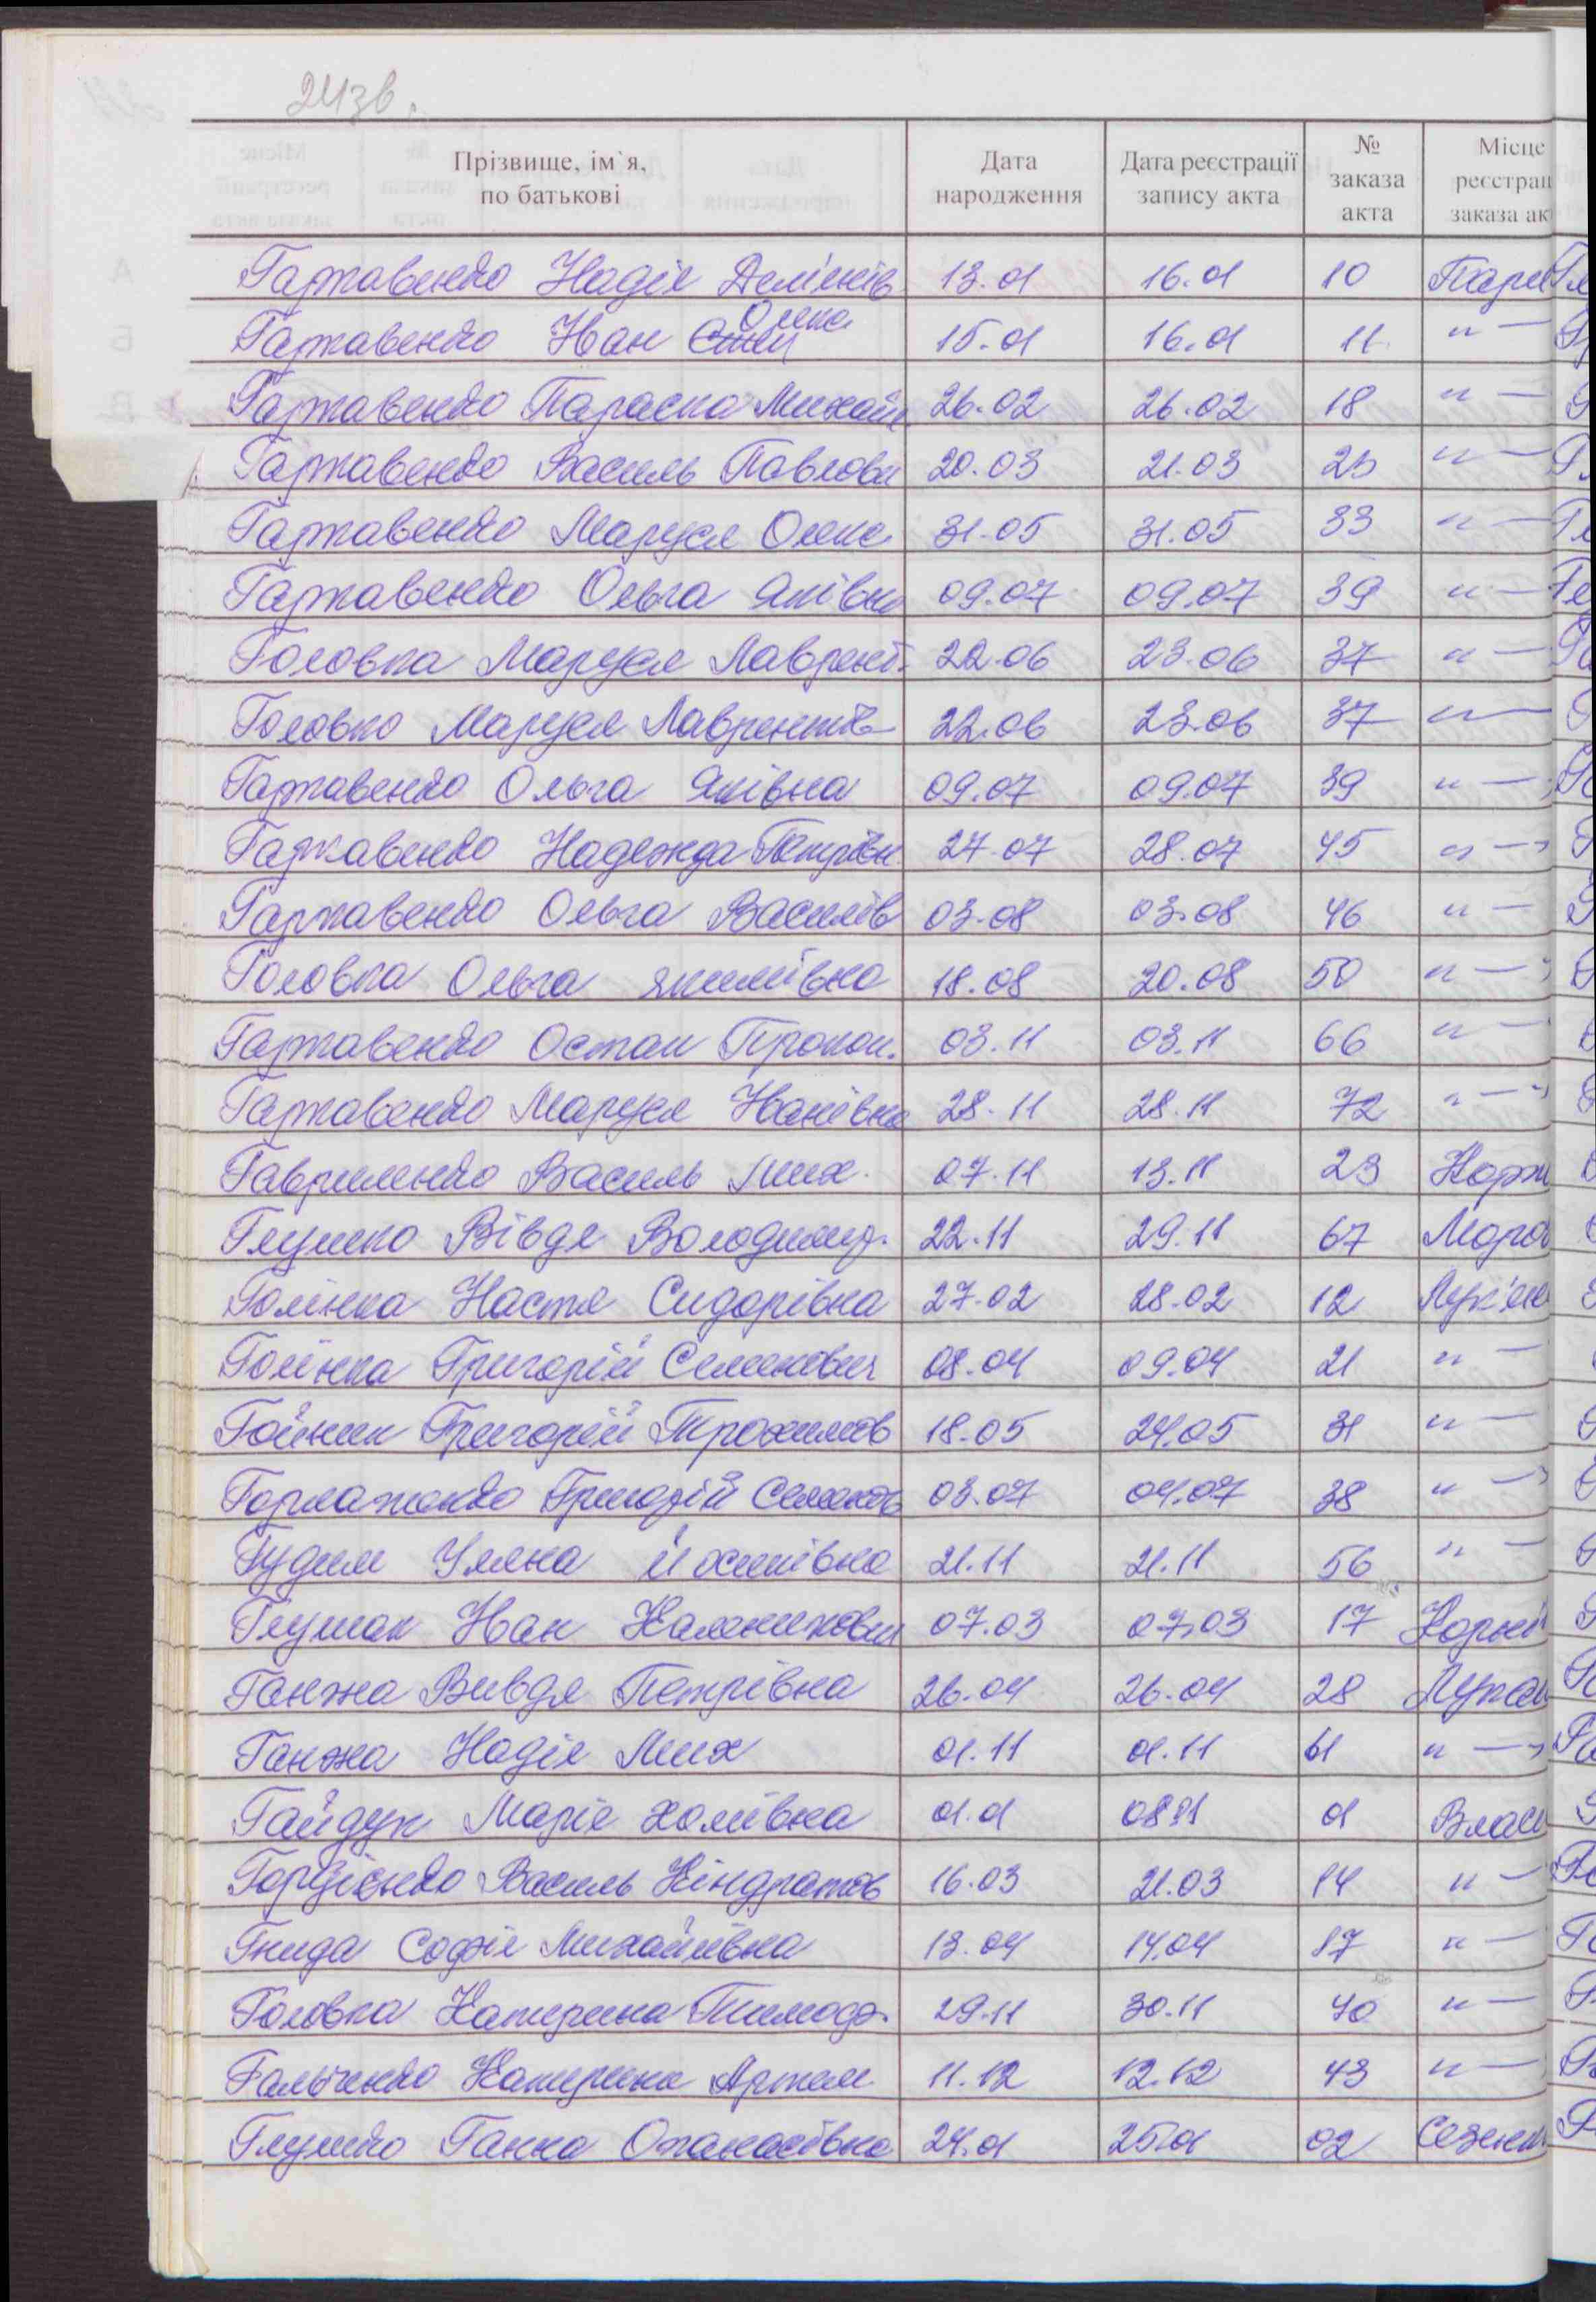 24зв.
Прізвище, ім`я, по батькові | Дата народження | Дата реєстрації запису акта | № заказа акта | Місце реєстрац заказа ак
Гаркавенко Надія | 13.01 | 16.01 | 10 | Паре
Гаркавенко Іван Олекс | 15.01 | 16.01 | 11 | " —
Гаркавенко Параска Михайл | 26.02 | 26.02 | 18 | " —
Гаркавенко Василь Павлови | 20.03 | 21.03 | 25 | " —
Гаркавенко Маруся Олекс | 31.05 | 31.05 | 33 | " —
Гаркавенко Ольга Яківна | 09.07 | 09.07 | 39 | " —
Головка Маруся Лаврент. | 22.06 | 23.06 | 37 | " —
Головко Маруся Лаврентів | 22.06 | 23.06 | 37 | " —
Гаркавенко Ольга Яківна | 09.07 | 09.07 | 39 | " —
Гаркавенко Надежда Петрівн | 27.07 | 28.07 | 45 | " —
Гаркавенко Ольга Василів | 03.08 | 03.08 | 46 | " —
Головка Ольга Якимівна | 18.08 | 20.08 | 50 | " —
Гаркавенко Остап Прокоп. | 03.11 | 03.11 | 66 | " —
Гаркавенко Маруся Іванівна | 28.11 | 28.11 | 72 | " —
Гавриленко Василь Мих. | 07.11 | 13.11 | 23 | Корж
Глушко Вівдя Володимир. | 22.11 | 29.11 | 67 | Моро
Голінка Настя Сидорівна | 27.02 | 28.02 | 12 | Лук'ян
Голінка Григорій Семенович | 08.04 | 09.04 | 21 | " —
Гойник Григорій Трохимов | 18.05 | 24.05 | 31 | " —
Григорій Семенов | 03.07 | 04.07 | 38 | " —
Гудим Уляна Йосипівна | 21.11 | 21.11 | 56 | " —
Глушак Іван Каленикови | 07.03 | 07.03 | 17 | Корній
Ганжа Вивдя Петрівна | 26.04 | 26.04 | 28 | Лукаш
Ганжа Надія Мих | 01.11 | 01.11 | 61 | " —
Гайдук Марія Хомівна | 01.01 | 08.01 | 01 | Влас
Гордієнко Василь Кіндратов | 16.03 | 21.03 | 14 | " —
Гнида Софія Михайлівна | 13.04 | 14.04 | 17 | " —
Головка Катерина Тимоф. | 29.11 | 30.11 | 40 | " —
Гальченко Катерина Артем | 11.12 | 12.12 | 43 | " —
Глушко Ганна Опанасівна | 24.01 | 25.01 | 02 | Сезенк